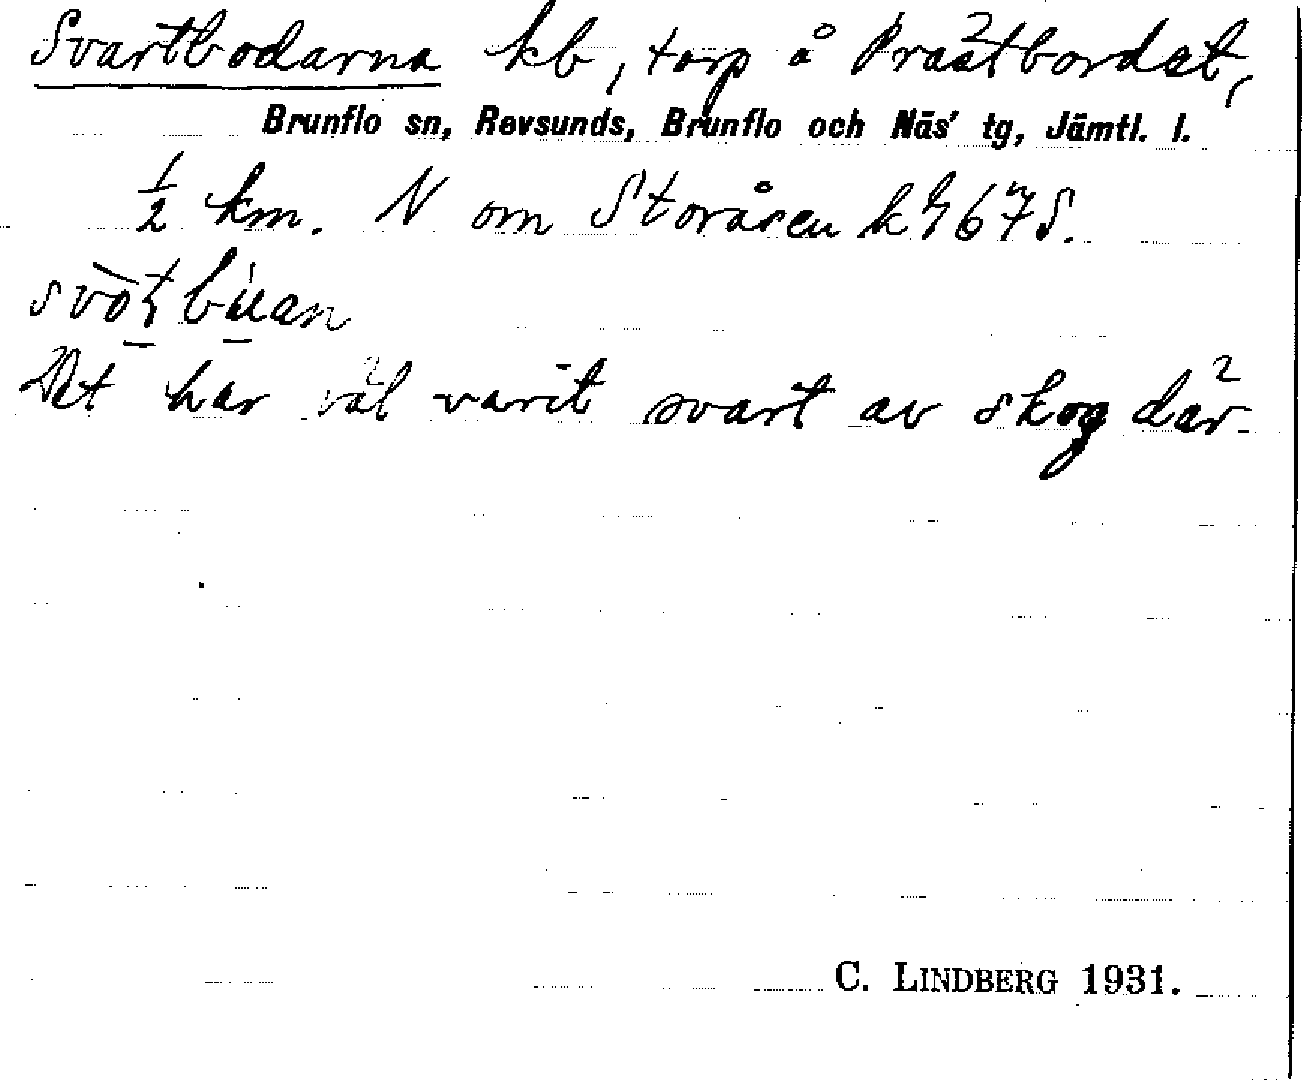 Svartbodarna kb, torp å Prästbordet,
Brunflo sn, Revsunds, Brunflo och Näs' tg, Jämtl. l.
½ km. N om Storåsen k 467 S.
Det har väl varit svart av skog där
C. LINDBERG 1931.